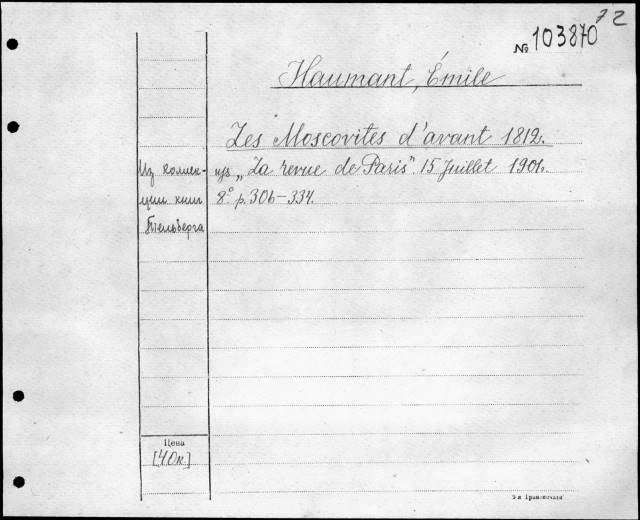 72
№ 103870
Haumant, Émile
Les Moscovites d'avant 1812.
Из коллек- изъ „La revue de Paris". 15 Juillet 1901.
ции книг 8° p. 306–334.
Тельберга
Цена
[40к.]